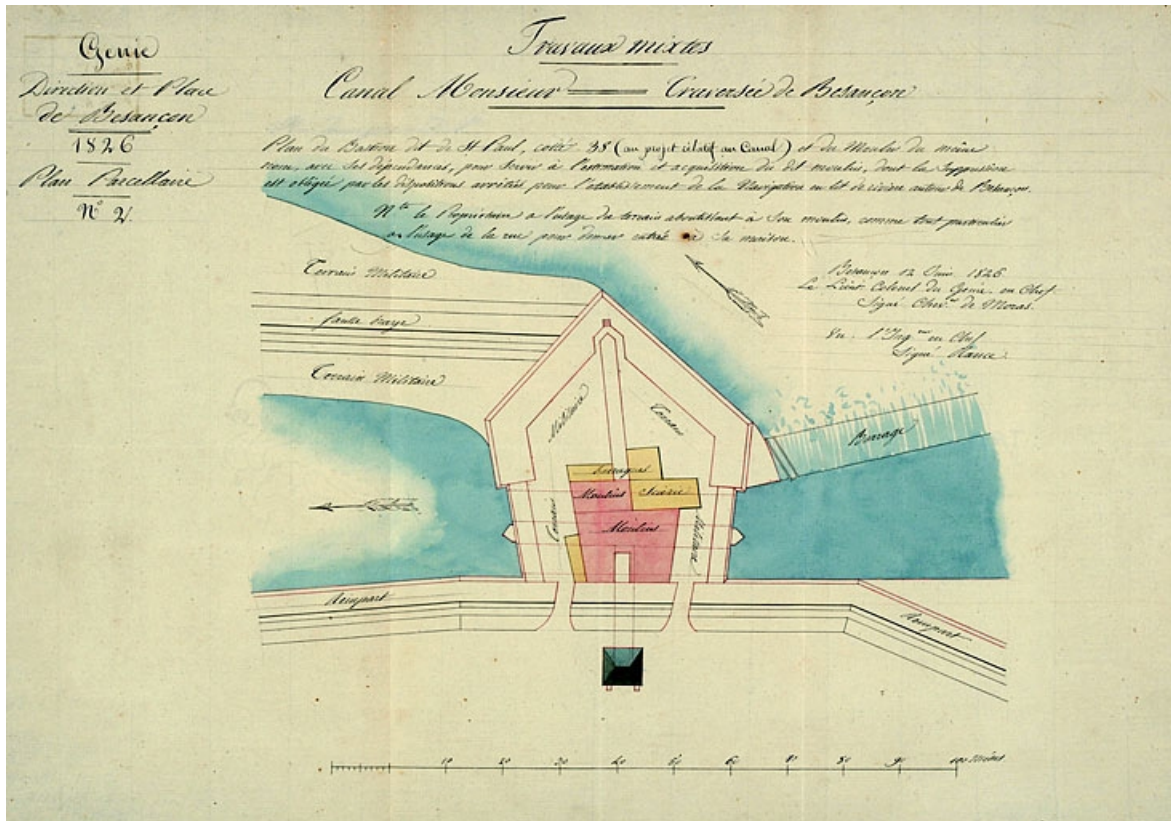 Genie
Direction et Place
de Besançon
1826
Plan Parcellaire
N° 2
Travaux mixtes
Canal Monsieur Traversée de Besançon
Plan du Bastion dit de St Paul, coté 38 (au projet rélatif au Canal) et du Moulin du même
nom, avec ses dépendances, pour servir à l'estimation et acquisition du dit moulin, dont la suppression
est obligée par les dispositions arrêtées pour l'établissement de la Navigation en lit de rivière autour de Besançon.
Nta le Propriétaire a l'usage du terrain aboutissant à son moulin, comme tout particulier
a l'usage de la rue pour donner entrée à sa maison.
Besançon 12 Juin 1826
Le Lieut Colonel du Genie en Chef
Signé Chev. de Moras
Vu l'Ingr en Chef
Signé
Terrain Militaire
fausse braye
Terrain Militaire
Militaire
Terrain
Barrage
baraques
Moulins
Scierie
Moulins
Terrain
Militaire
Rempart
Rempart
10 20 30 40 50 60 70 80 90 100 mètres